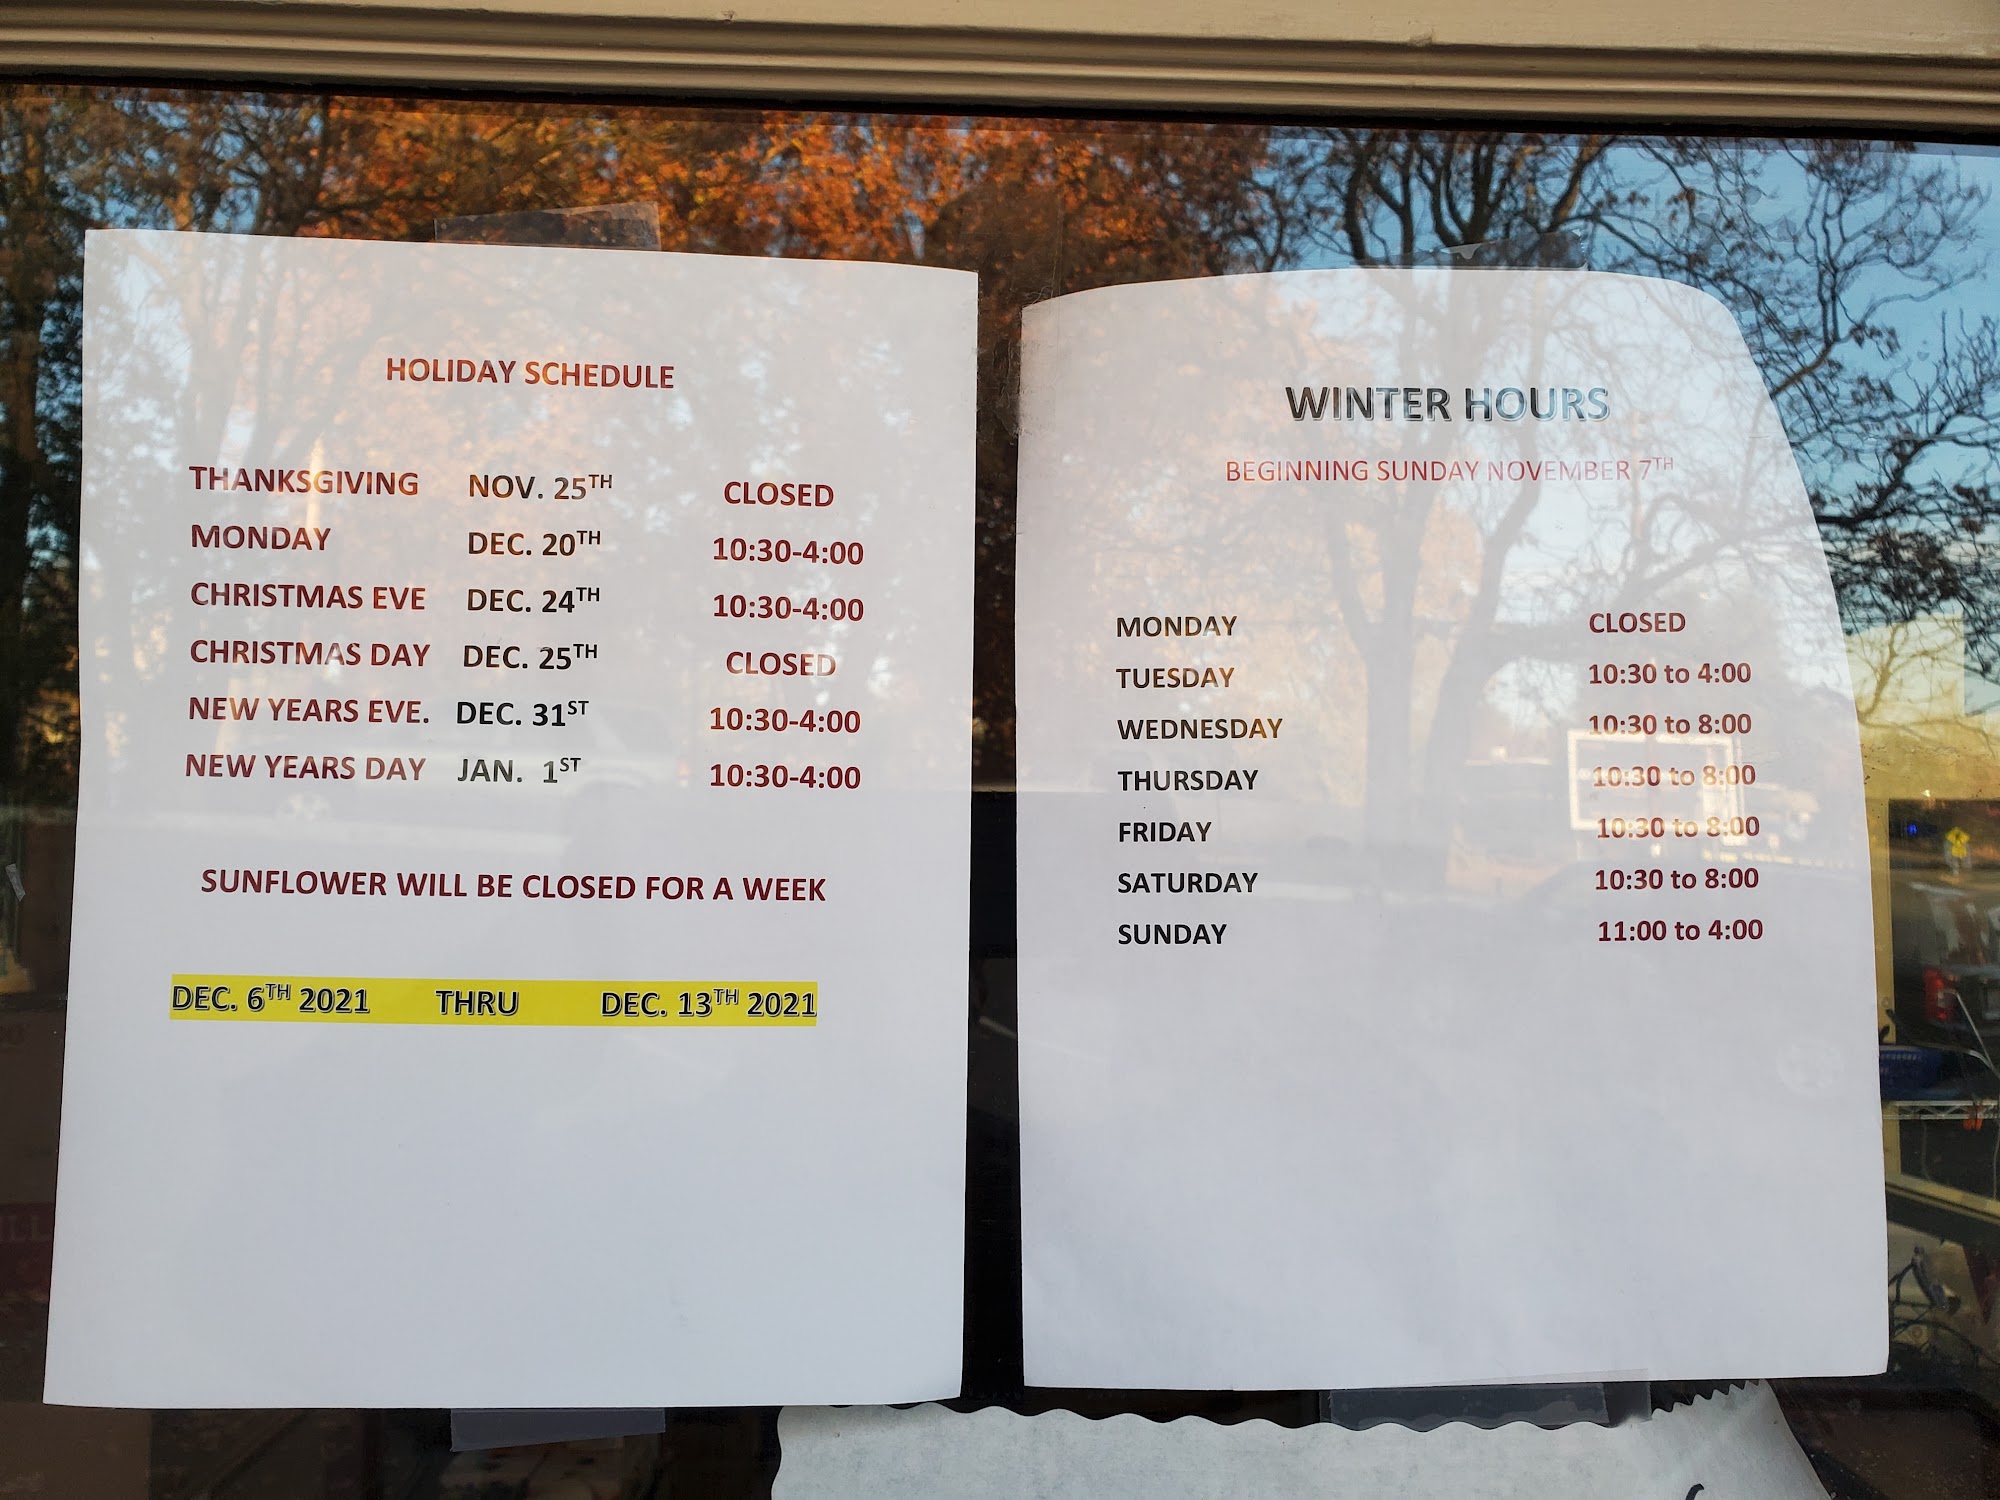 HOLIDAY SCHEDULE
THANKSGIVING NOV. 25TH CLOSED
MONDAY DEC. 20TH 10:30-4:00
CHRISTMAS EVE DEC. 24TH 10:30-4:00
CHRISTMAS DAY DEC. 25TH CLOSED
NEW YEARS EVE. DEC. 31ST 10:30-4:00
NEW YEARS DAY JAN. 1ST 10:30-4:00
SUNFLOWER WILL BE CLOSED FOR A WEEK
DEC. 6TH 2021 THRU DEC. 13TH 2021
WINTER HOURS
BEGINNING SUNDAY NOVEMBER 7TH
MONDAY CLOSED
TUESDAY 10:30 to 4:00
WEDNESDAY 10:30 to 8:00
THURSDAY 10:30 to 8:00
FRIDAY 10:30 to 8:00
SATURDAY 10:30 to 8:00
SUNDAY 11:00 to 4:00